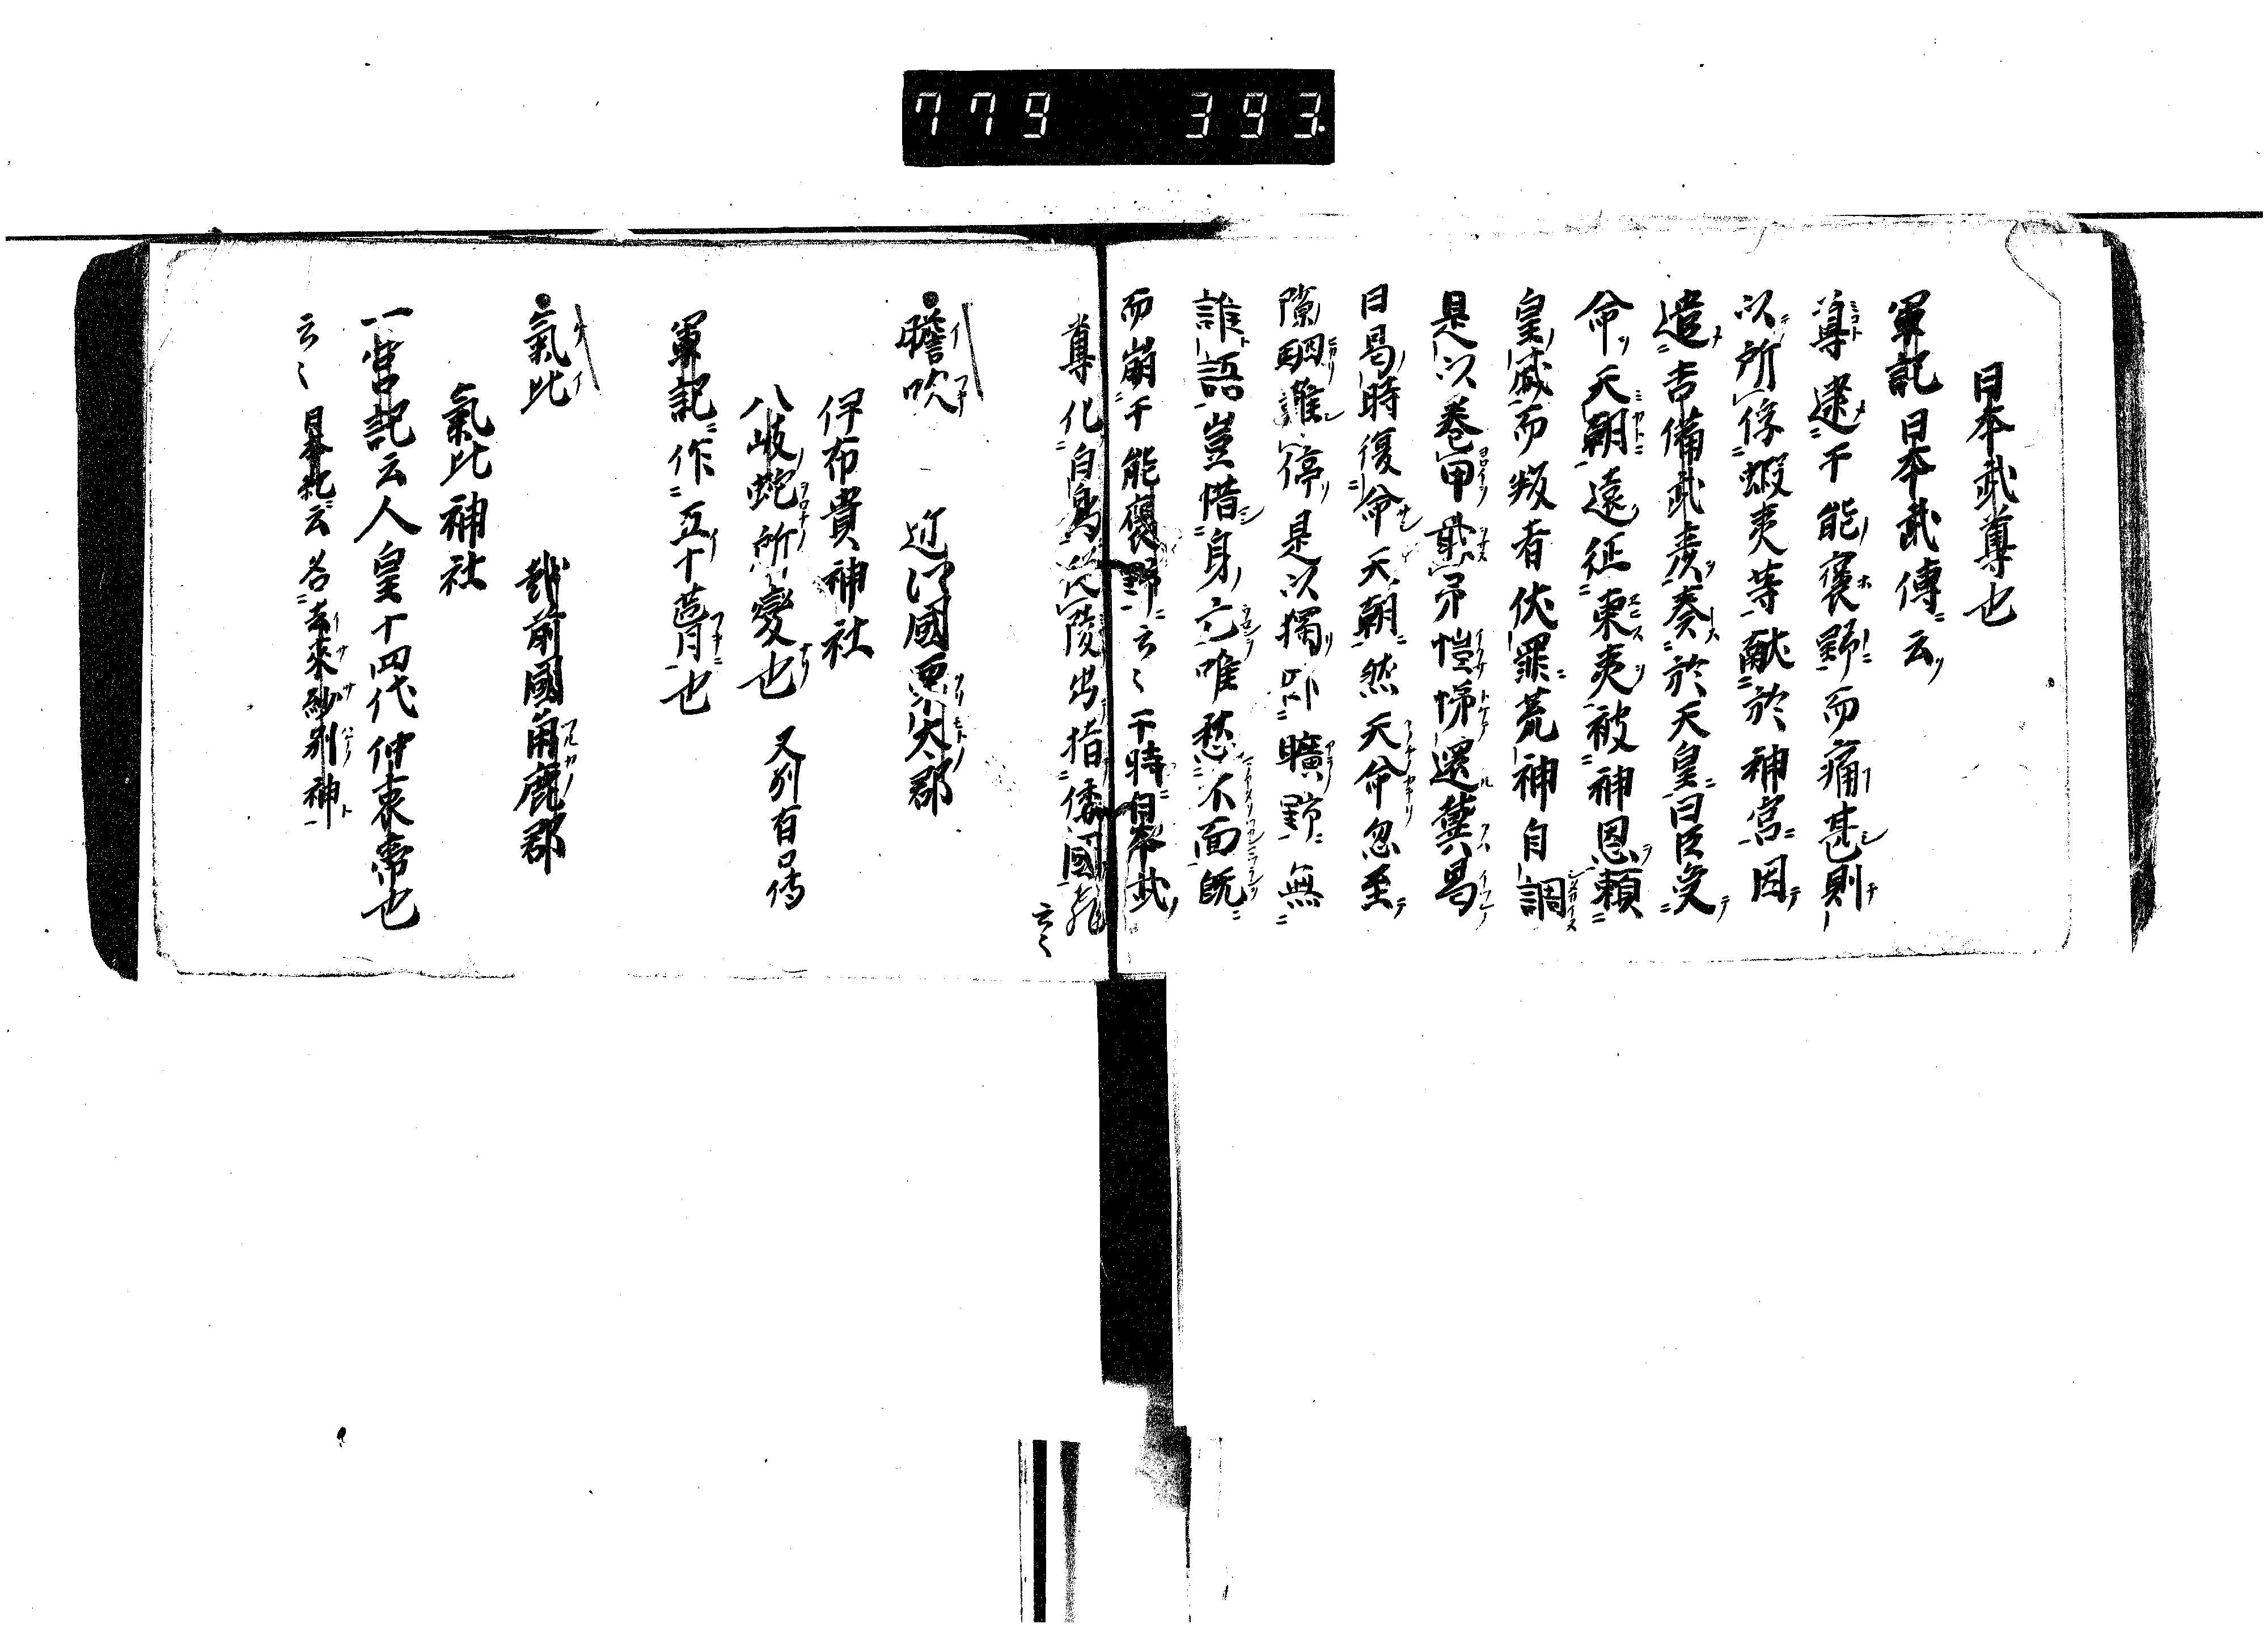 779 393
日本武尊也
軍記日本武傳云
尊逮于能褒野而痛甚則
以所俘蝦夷等献於神宮因
遣吉備武彦奏於天皇曰臣受
命天朝遠征東夷被神恩頼
皇威而叛者伏罪荒神自調
是以巻甲戢弟愷悌還冀曷
日曷時復命天朝然天命忽至
隙駟難停是以獨卧曠野無
誰語豈惜身亡唯愁不面既
而崩于能褒野云々于時日本武
尊化白鳥從陵出指倭國飛
云々
膽吹 近江國栗太郡
伊布貴神社
八岐蛇所變也 又別有口傳
軍記作五十葺也
氣比 越前國角鹿郡
氣比神社
一宮記云人皇十四代仲哀帝也
云々 日本紀云名去來紗別神